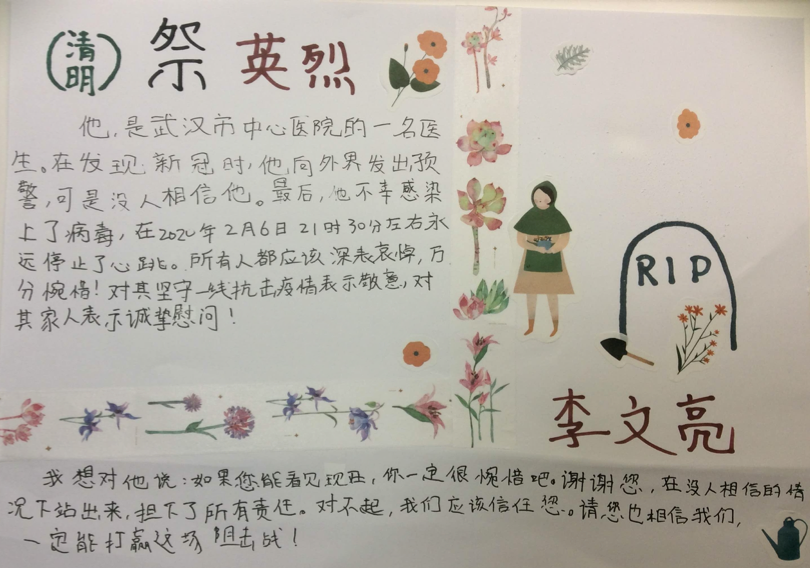 （清明）祭英烈
他，是武汉市中心医院的一名医
生。在发现新冠时，他向外界发出预
警，可是没人相信他。最后，他不幸感染
上了病毒，在2020年2月6日21时30分左右永
远停止了心跳。所有人都应该深表哀悼，万
分惋惜！对其坚守一线抗击疫情表示敬意，对
其家人表示诚挚慰问！
RIP
李文亮
我想对他说：如果您能看见现在，你一定很惋惜吧。谢谢您，在没人相信的情
况下站出来，担下了所有责任。对不起，我们应该信任您。请您也相信我们，
一定能打赢这场阻击战！